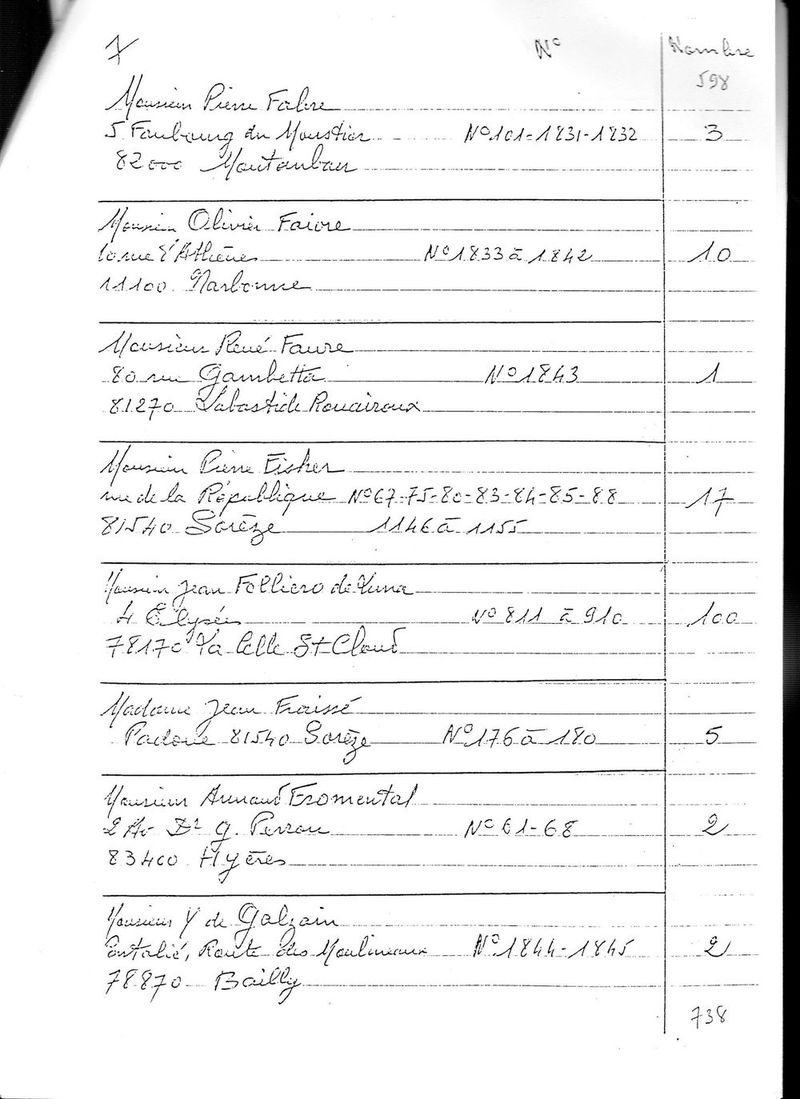 7 N° Nombre
598
Monsieur Pierre Fabre
5 Faubourg du Moustier N°101-1831-1832 3
82000 Montauban
Monsieur Olivier Faivre
10 rue d'Athènes N°1833 à 1842 10
11100 Narbonne
Monsieur René Faure
80 rue Gambetta N°1843 1
81270 Labastide Rouairoux
Monsieur Pierre Fisher
rue de la République N°67-75-80-83-84-85-88 17
81540 Sorèze 1146 à 1155
Monsieur Jean Folliero de Luna
4 Elysée N°811 à 910 100
78170 La Celle St Cloud
Madame Jean Fraissé
Padoue 81540 Sorèze N°176 à 180 5
Monsieur Arnaud Fromental
2 Av Dr G. Perron N°61-68 2
83400 Hyères
Monsieur Y de Galzain
Route des Moulineaux N°1844-1845 2
78870 Bailly
738